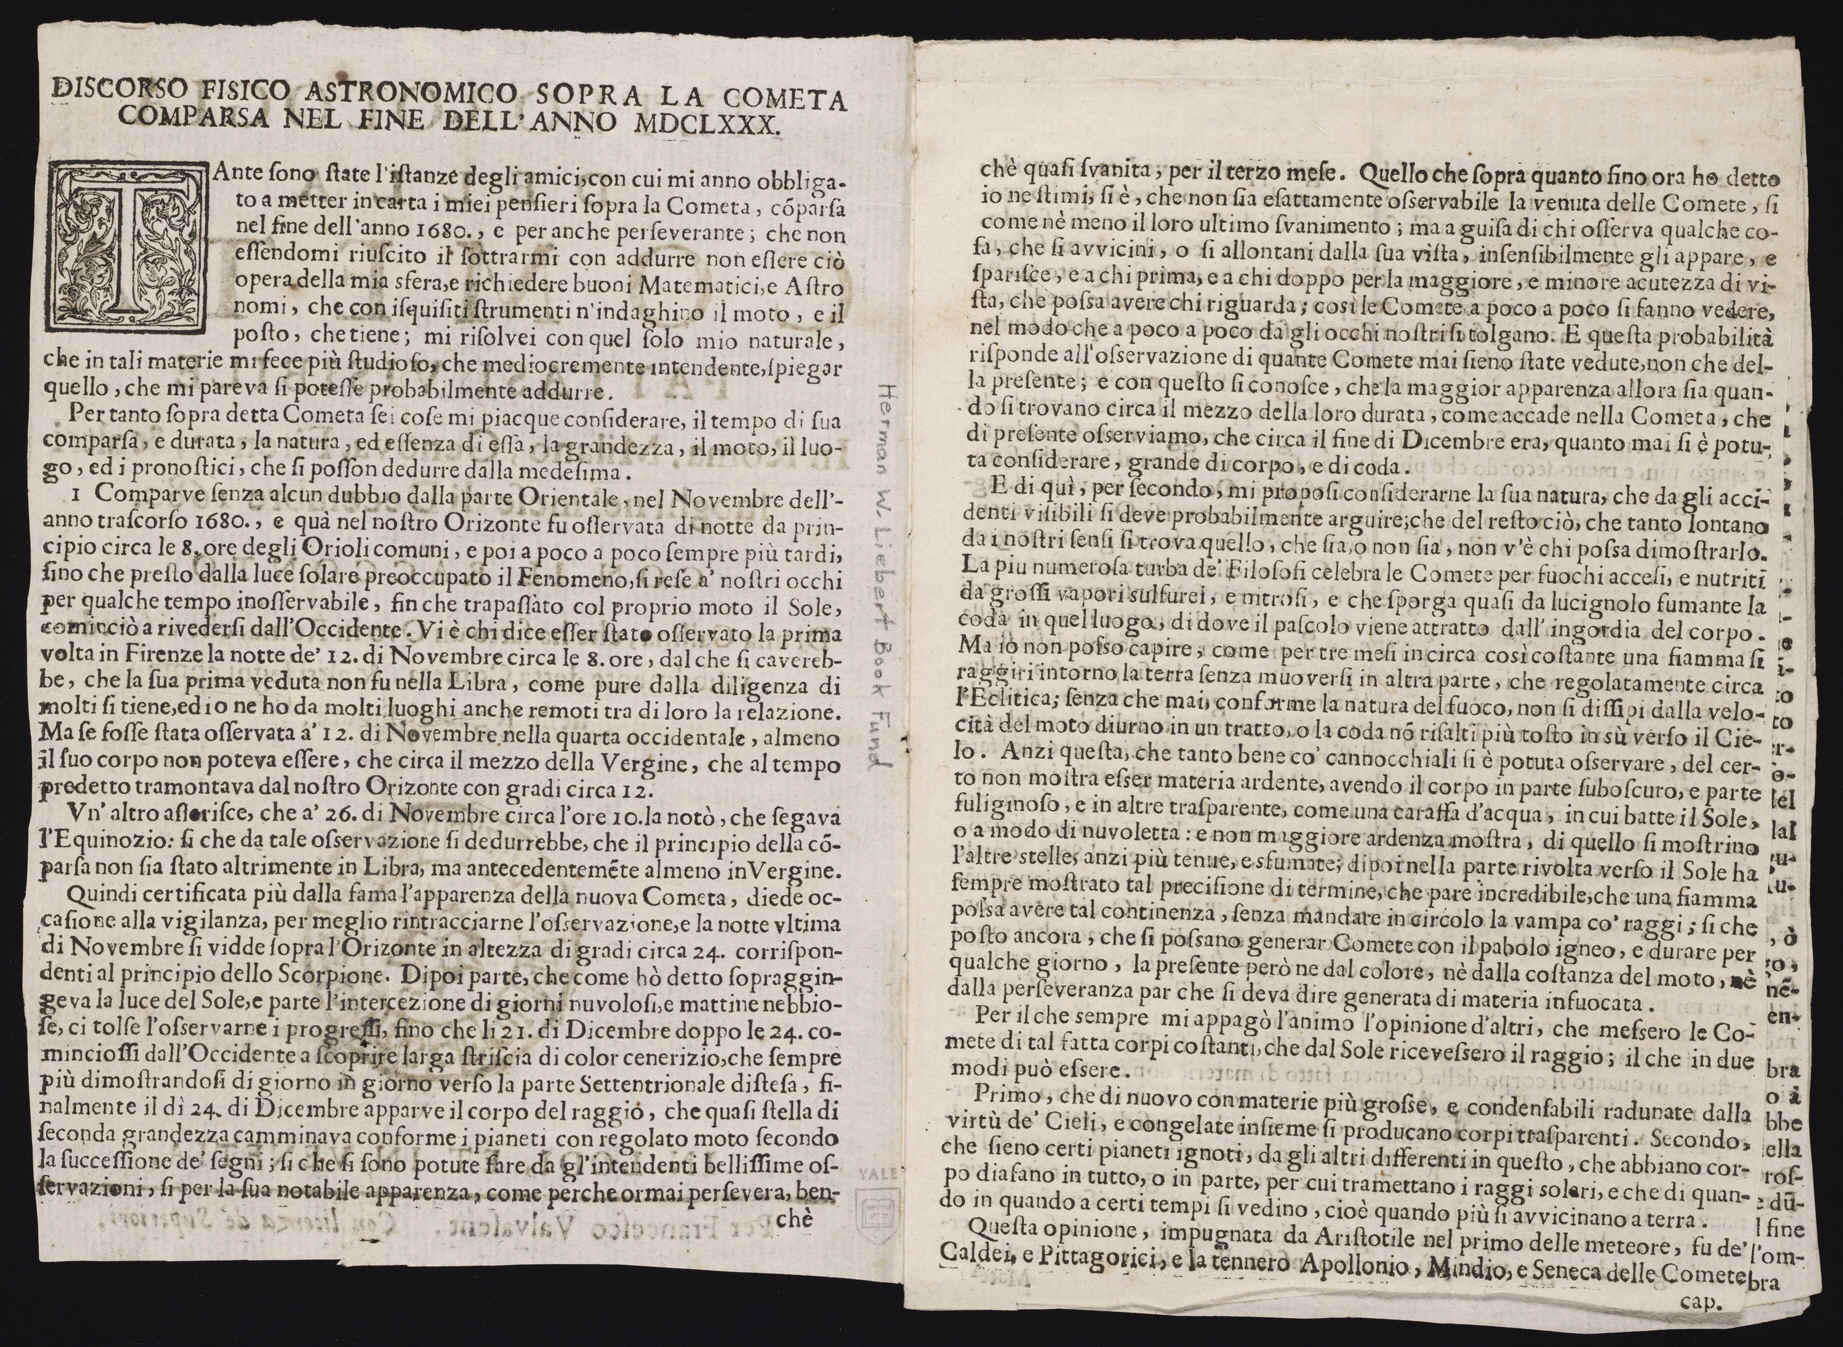 DISCORSO FISICO ASTRONOMICO SOPRA LA COMETA
COMPARSA NEL FINE DELL'ANNO MDCLXXX.
TAnte ſono ſtate l'iſtanze degli amici, con cui mi anno obbliga-
to a metter in carta i miei penſieri ſopra la Cometa, cõparſa
nel fine dell'anno 1680., e per anche perſeverante; che non
eſſendomi riuſcito il ſottrarmi con addurre non eſſere ciò
opera della mia sfera, e richiedere buoni Matematici, e Aſtro
nomi, che con iſquiſiti ſtrumenti n'indaghino il moto, e il
poſto, che tiene; mi riſolvei con quel ſolo mio naturale,
che in tali materie mi fece più ſtudioſo, che mediocremente intendente, ſpiegar
quello, che mi pareva ſi poteſſe probabilmente addurre.
Per tanto ſopra detta Cometa ſei coſe mi piacque conſiderare, il tempo di ſua
comparſa, e durata, la natura, ed eſſenza di eſſa, la grandezza, il moto, il luo-
go, ed i pronoſtici, che ſi poſſon dedurre dalla medeſima.
1 Comparve ſenza alcun dubbio dalla parte Orientale, nel Novembre dell'-
anno traſcorſo 1680., e quà nel noſtro Orizonte fu oſſervata di notte da prin-
cipio circa le 8. ore degli Orioli comuni, e poi a poco a poco ſempre più tardi,
ſino che preſto dalla luce ſolare preoccupato il Fenomeno, ſi reſe a' noſtri occhi
per qualche tempo inoſſervabile, fin che trapaſſàto col proprio moto il Sole,
cominciò a rivederſi dall'Occidente. Vi è chi dice eſſer ſtato oſſervato la prima
volta in Firenze la notte de' 12. di Novembre circa le 8. ore, dal che ſi cavereb-
be, che la ſua prima veduta non fu nella Libra, come pure dalla diligenza di
molti ſi tiene, ed io ne ho da molti luoghi anche remoti tra di loro la relazione.
Ma ſe foſſe ſtata oſſervata a' 12. di Novembre nella quarta occidentale, almeno
il ſuo corpo non poteva eſſere, che circa il mezzo della Vergine, che al tempo
predetto tramontava dal noſtro Orizonte con gradi circa 12.
Vn' altro aſſeriſce, che a' 26. di Novembre circa l'ore 10. la notò, che ſegava
l'Equinozio: ſi che da tale oſservazione ſi dedurrebbe, che il principio della cõ-
parſa non ſia ſtato altrimente in Libra, ma antecedentemẽte almeno in Vergine.
Quindi certificata più dalla fama l'apparenza della nuova Cometa, diede oc-
caſione alla vigilanza, per meglio rintracciarne l'oſservazione, e la notte vltima
di Novembre ſi vidde ſopra l'Orizonte in altezza di gradi circa 24. corriſpon-
denti al principio dello Scorpione. Dipoi parte, che come hò detto ſopraggiun-
geva la luce del Sole, e parte l'intercezione di giorni nuvoloſi, e mattine nebbio-
ſe, ci tolſe l'oſservarne i progreſſi, fino che li 21. di Dicembre doppo le 24. co-
mincioſſi dall'Occidente a ſcoprire larga ſtriſcia di color cenerizio, che ſempre
più dimoſtrandoſi di giorno in giorno verſo la parte Settentrionale diſteſa, fi-
nalmente il dì 24. di Dicembre apparve il corpo del raggio, che quaſi ſtella di
ſeconda grandezza camminava conforme i pianeti con regolato moto ſecondo
la ſucceſſione de' ſegni; ſi che ſi ſono potute fare da gl'intendenti belliſſime oſ-
ſervazioni, ſi per la ſua notabile apparenza, come perche ormai perſevera, ben-
chè
Herman W. Liebert Book Fund
YALE
chè quaſi ſvanita, per il terzo meſe. Quello che ſopra quanto ſino ora ho detto
io ne ſtimi, ſi è, che non ſia eſattamente oſservabile la venuta delle Comete, ſi
come nè meno il loro ultimo ſvanimento; ma a guiſa di chi oſſerva qualche co-
ſa, che ſi avvicini, o ſi allontani dalla ſua viſta, inſenſibilmente gli appare, e
ſpariſce, e a chi prima, e a chi doppo per la maggiore, e minore acutezza di vi-
ſta, che poſsa avere chi riguarda; così le Comete a poco a poco ſi fanno vedere,
nel modo che a poco a poco da gli occhi noſtri ſi tolgano. E queſta probabilità
riſponde all'oſservazione di quante Comete mai ſieno ſtate vedute, non che del-
la preſente; e con queſto ſi conoſce, che la maggior apparenza allora ſia quan-
do ſi trovano circa il mezzo della loro durata, come accade nella Cometa, che
di preſente oſserviamo, che circa il fine di Dicembre era, quanto mai ſi è potu-
ta conſiderare, grande di corpo, e di coda.
E di quì, per ſecondo, mi propoſi conſiderarne la ſua natura, che da gli acci-
denti viſibili ſi deve probabilmente arguire; che del reſto ciò, che tanto lontano
da i noſtri ſenſi ſi trova quello, che ſia, o non ſia, non v'è chi poſsa dimoſtrarlo.
La piu numeroſa turba de' Filoſofi celebra le Comete per fuochi acceſi, e nutriti
da groſſi vapori sulfurei, e nitroſi, e che ſporga quaſi da lucignolo fumante la
coda in quel luogo, di dove il paſcolo viene attratto dall' ingordia del corpo.
Ma io non poſso capire, come per tre meſi in circa così coſtante una fiamma ſi
raggiri intorno la terra ſenza muoverſi in altra parte, che regolatamente circa
l'Eclitica; ſenza che mai, conforme la natura del fuoco, non ſi diſſipi dalla velo-
cità del moto diurno in un tratto, o la coda nõ riſalti più toſto in sù verſo il Cie-
lo. Anzi queſta, che tanto bene co' cannocchiali ſi è potuta oſservare, del cer-
to non moſtra eſser materia ardente, avendo il corpo in parte ſuboſcuro, e parte
fuliginoſo, e in altre traſparente, come una caraffa d'acqua, in cui batte il Sole,
o a modo di nuvoletta: e non maggiore ardenza moſtra, di quello ſi moſtrino
l'altre ſtelle, anzi più tenue, e sfumate; dipoi nella parte rivolta verſo il Sole ha
ſempre moſtrato tal preciſione di termine, che pare incredibile, che una fiamma
poſsa avere tal continenza, ſenza mandare in circolo la vampa co' raggi; ſi che
poſto ancora, che ſi poſsano generar Comete con il pabolo igneo, e durare per
qualche giorno, la preſente però ne dal colore, nè dalla coſtanza del moto, nè
dalla perſeveranza par che ſi deva dire generata di materia infuocata.
Per il che sempre mi appagò l'animo l'opinione d'altri, che meſsero le Co-
mete di tal fatta corpi coſtanti, che dal Sole riceveſsero il raggio; il che in due
modi può eſsere.
Primo, che di nuovo con materie più groſse, e condenſabili radunate dalla
virtù de' Cieli, e congelate inſieme ſi producano corpi traſparenti. Secondo,
che ſieno certi pianeti ignoti, da gli altri differenti in queſto, che abbiano cor-
po diafano in tutto, o in parte, per cui tramettano i raggi solari, e che di quan-
do in quando a certi tempi ſi vedino, cioè quando più ſi avvicinano a terra.
Queſta opinione, impugnata da Ariſtotile nel primo delle meteore, fu de'
Caldei, e Pittagorici, e la tennero Apollonio, Mindio, e Seneca delle Comete
cap.